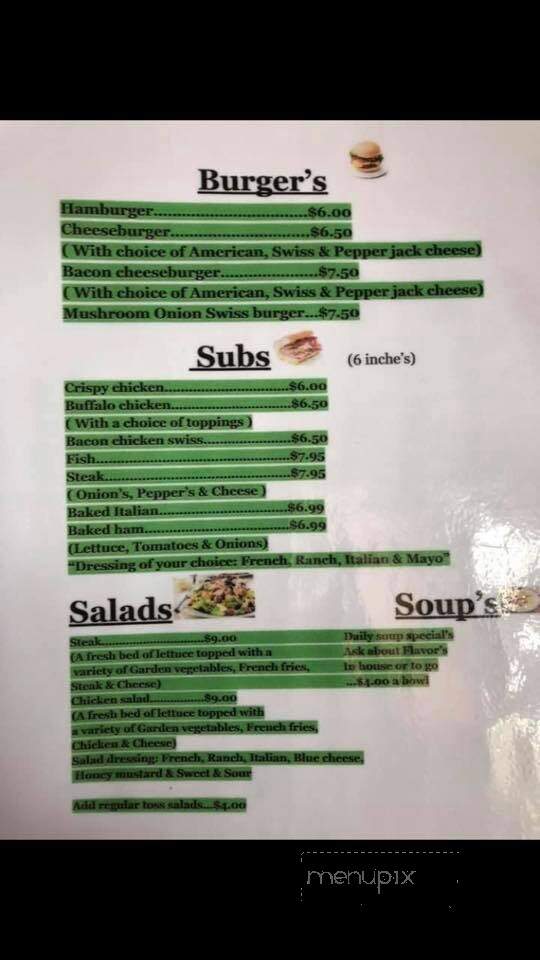 Burger's
Hamburger.................................$6.00
Cheeseburger..............................$6.50
( With choice of American, Swiss & Pepper jack cheese)
Bacon cheeseburger.....................$7.50
( With choice of American, Swiss & Pepper jack cheese)
Mushroom Onion Swiss burger...$7.50
Subs
(6 inche's)
Crispy chicken...........................$6.00
Buffalo chicken..........................$6.50
( With a choice of toppings )
Bacon chicken swiss...................$6.50
Fish..........................................$7.95
Steak........................................$7.95
( Onion's, Pepper's & Cheese )
Baked Italian............................$6.99
Baked ham...............................$6.99
(Lettuce, Tomatoes & Onions)
"Dressing of your choice: French, Ranch, Italian & Mayo"
Salads
Steak........................$9.00
(A fresh bed of lettuce topped with a
variety of Garden vegetables, French fries,
Steak & Cheese)
Chicken salad..............$9.00
(A fresh bed of lettuce topped with
a variety of Garden vegetables, French fries,
Chicken & Cheese)
Salad dressing: French, Ranch, Italian, Blue cheese,
Honey mustard & Sweet & Sour
Add regular toss salads...$4.00
Soup's
Daily soup special's
Ask about Flavor's
In house or to go
...$4.00 a bowl
menupix